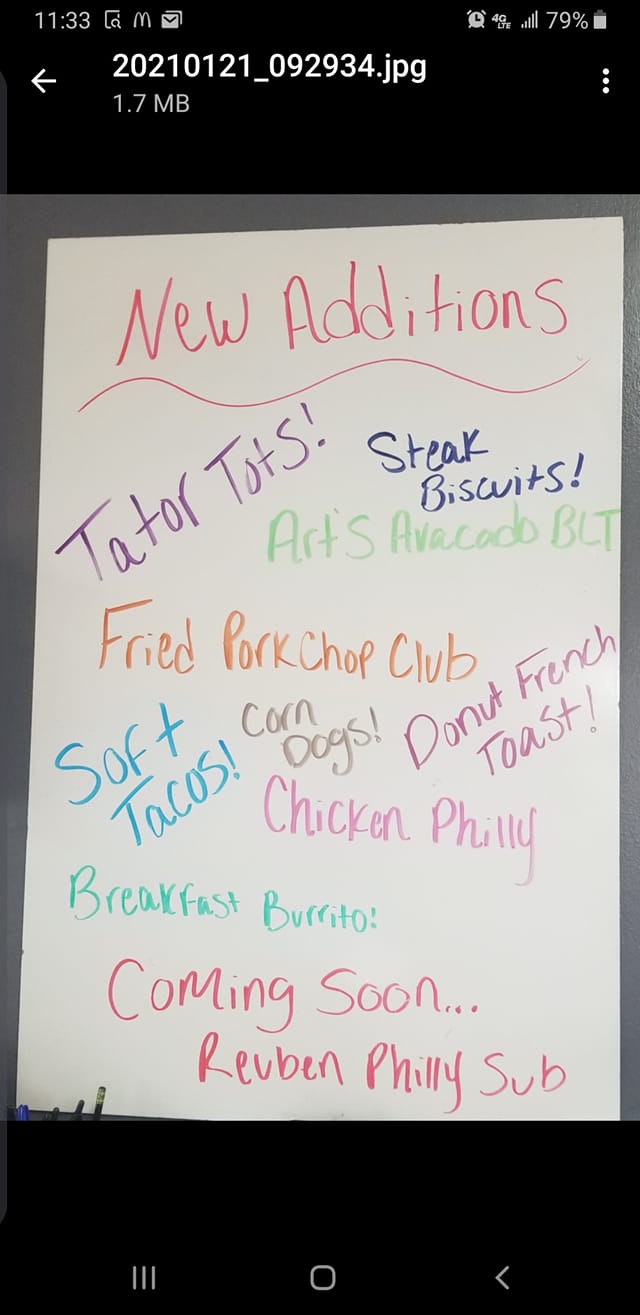 11:33 79%
20210121_092934.jpg
1.7 MB
New Additions
Tator Tots!
Steak
Biscuits!
Art's Avacado BLT
Fried Pork Chop Club
Donut French
Toast!
Corn
Dogs!
Soft
Tacos!
Chicken Philly
Breakfast Burrito!
Coming Soon...
Reuben Philly Sub